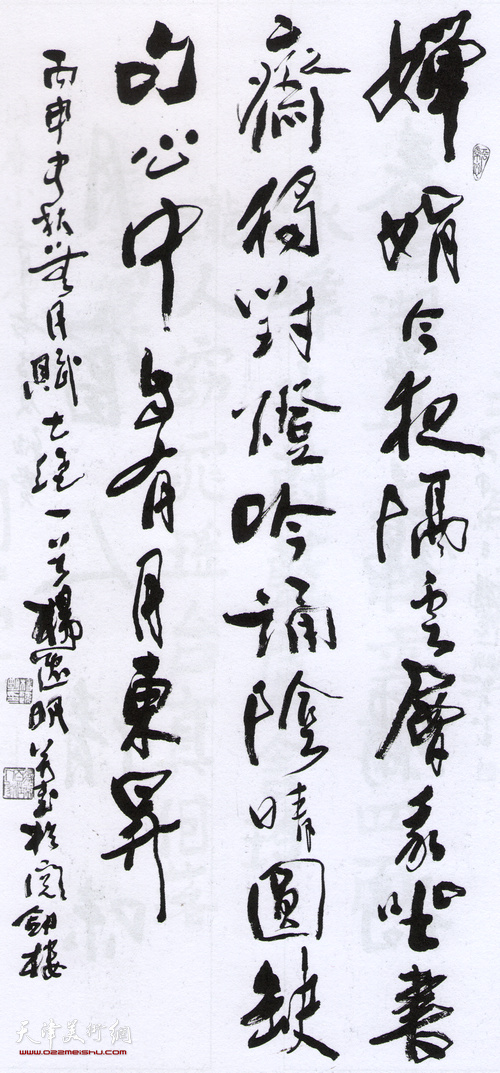 嬋娟今夜隔雲層我坐書
齋獨對燈吟誦陰晴圓缺
句心中自有月東昇
丙申中秋無月賦七絕一首楊逸明并書於劍樓
天津美術網
www.022meishu.com